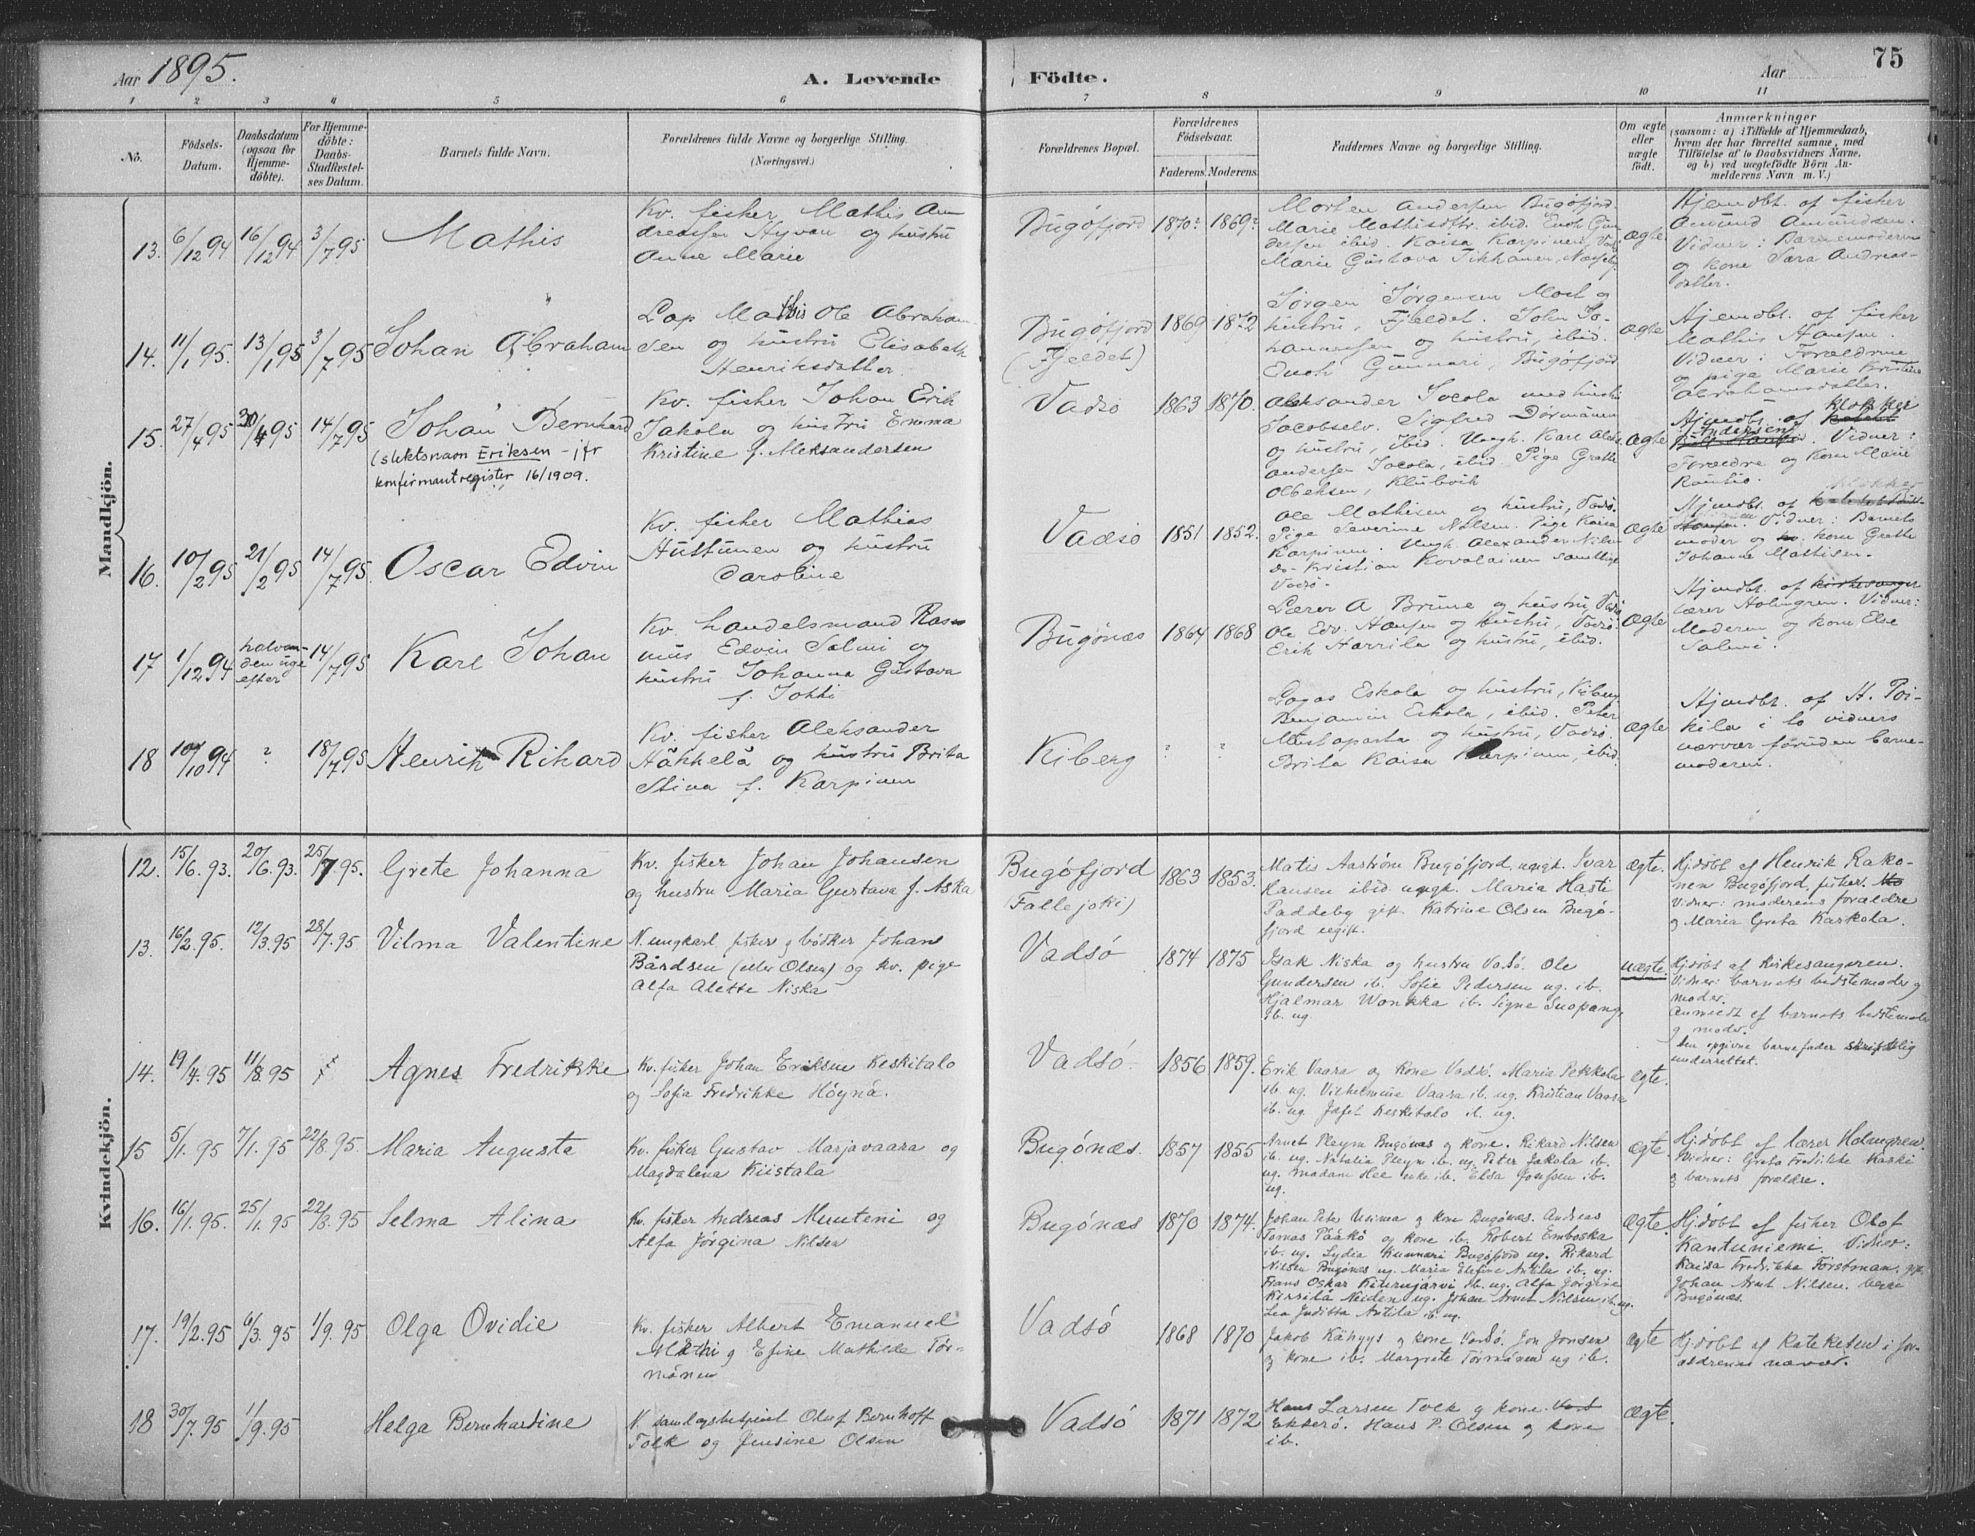 Aar 1895.
A. Levende Födte.
Aar
75
1 2 3 4 5 6 7 8 9 10 11
No.
Födsels-
Datum.
Daabsdatum
(ogsaa for
Hjemme-
döbte).
For Hjemme-
döbte:
Daabs-
Stadfæstel-
ses Datum.
Barnets fulde Navn.
Forældrenes fulde Navne og borgerlige Stilling.
(Næringsvei.)
Forældrenes Bopæl.
Forældrenes
Födselsaar.
Faderens. Moderens.
Faddernes Navne og borgerlige Stilling.
Om ægte
eller
uægte
födt.
Anmærkninger
(saasom: a) i Tilfælde af Hjemmedaab,
hvem der har forrettet samme, med
Tilföielse af to Daabsvidners Navne,
og b) ved uægtefödte Börn An-
melderens Navn m. V.)
Mandkjön.
13. 6/12 94 16/12 94 3/7 95
Mathis
Kv. fisker Mathis An
dreassen Hyvan og hustru
Anne Marie
Bugöfjord 1870? 1869?
Morten Andersen Bugöfjord.
Marie Mathisdtr. ibid. Enok Gun
dersen ibid. Kaisa Karpinen,
Marie Gustava Tikkanen,
ægte
Hjemdbt. af fisker
Amund Amundsen.
Vidner: Barnemoderen
og kone Sara Andreas-
datter.
14. 11/1 95. 13/1 95 3/7 95
Johan Abraham
Lap Mathis Ole Abraham
sen og hustru Elisabeth
Henriksdatter.
Bugöfjord
(Fjeldet)
1869 1872
Jörgen Jörgensen Mort og
hustru, Fjeldet. John Jo-
hannessen og hustru, ibid.
Enok Gunnari, Bugöfjord
ægte
Hjemdbt. af fisker
Mathis Hansen.
Vidner: Forældrene
og pige Marie Kristine
Abrahamsdatter.
15. 27/4 95 30/4 95 14/7 95
Johan Bernhard
(slektsnavn Eriksen - jfr
konfirmantregister 16/1909.
Kv. fisker Johan Erik
Jakola og hustru Emma
Kristine f. Aleksandersen
Vadsö 1863 1870.
Aleksander Jocola med hustru
Jacobselv. Sigfrid Dørmænen
og hustru, ibid. Ungk. Karl Aleks
andersen Jocola, ibid. Pige Grethe
Olbeksen, Klubvik
ægte
Hjemdbt. af klokker
Andersen. Vidner:
Forældre og kone Marie
Rautio.
16. 10/2 95 21/2 95 14/7 95.
Oscar Edvin
Kv. fisker Mathias
Huttunen og hustru
Caroline
Vadsö 1851 1852.
Ole Mathisen og hustru, Vadsö.
Pige Severine Nilsen. Pige Kaisa
Karpinen. Ungk. Alexander Nilsen
do Kristian Kovalainen samtlige
Vadsö.
ægte
Hjemdbt. af klokker
Vidner: Barnets
moder og kone Grethe
Johanne Mathisen.
17 1/12 94 halvan-
den uge
efter 14/7 95
Karl Johan
Kv. handelsmand Ras
mus Edvin Salmi og
hustru Johanna Gustava
f. Johti
Bugönæs 1864 1868
Lærer A Brune og hustru Vadsö
Ole Edv. Hansen og hustru, Vadsö.
Erik Harrila og hustru, ibid.
ægte
Hjemdbt. af kirkesanger
lærer Holmgren. Vidner:
Moderen og kone Else
Salmi.
18 10/10 94 ? 18/7 95
Henrik Rikard
Kv. fisker Aleksander
Häkkelä og hustru Brita
Stina f. Karpinen
Kiberg ? ?
Eskola og hustru, Kiberg
Benjamin Eskola, ibid. Peter
Mustaparta og hustru, Vadsö.
Brita Kaisa Karpinen, ibid.
ægte
Hjemdbt. af H. Poi-
kila i to vidners
nærvær foruden barne-
moderen.
Kvindekjön.
12. 15/6. 93. 20/6. 93. 25/7. 95.
Grete Johanna
Kv. fisker Johan Johansen
og hustru Maria Gustava f. Aska
Bugöfjord
(Fallejoki)
1863 1853.
Matis Aaström Bugöfjord, ungk. Ivar
Hansen ibid ungk. Maria Hasti
Paddeby gift. Katrine Olsen Bugö-
fjord ugift.
ægte.
Hjdöbt af Henrik Rako-
nen Bugöfjord, fisker.
Vidner: moderens forældre
og Maria Greta Karkola.
13. 16/2. 95. 12/3. 95 28/7. 95
Vilma Valentine
N. ungkarl fisker og bödker Johan
Bårdsen (eller Olsen) og kv. pige
Alfa Alette Niska
Vadsö 1874 1875
Isak Niska og hustru Vadsö. Ole
Gundersen ib. Sofie Pedersen ug. ib.
Hjalmar Wonkka ib. Signe Suopanj.
ib. ug.
uægte.
Hjdöbt af Kirkesangeren.
Vidner: barnets bedstemoder og
moder.
Anmeldt af barnets bedstemoder
og moder.
Den opgivne barnefader skriftlig
underrettet.
14. 19/4. 95 11/8. 95
Agnes Fredrikke
Kv. fisker Johan Eriksen Keskitalo
og Sofia Fredrikke Höynä.
Vadsö. 1856 1859.
Erik Vaara og kone Vadsö. Maria Pekkola
ib. ug. Vilhelmine Vaara ib. ug. Kristian Vaara
ib. ug. Jafet Keskitalo ib. ug.
ægte.
15 5/1. 95 7/1. 95 22/8. 95.
Maria Augusta
Kv. fisker Gustav Marjavaara og
Magdalena Kiistala
Bugönæs. 1857 1855
Arnet Pleym Bugönæs og kone. Rikard Nilsen
ib. ug. Natalia Pleym ib. ug. Peter Jakola ib.
ug. Madam Hee enke ib. Elsa Josefsen ib.
ug.
ægte
Hjdöbt af lærer Holmgren.
Vidner: Greta Fredrikke Kaski
og barnets forældre.
16. 16/1. 95. 25/1. 95 22/8. 95
Selma Alina
Kv. fisker Andreas Munteni og
Alfa Jörgina Nilsen
Bugönæs 1870 1874.
Johan Peter Uusima og kone Bugönæs. Andreas
Tomas Pääkö og kone ib. Robert Emboska
ib. ug. Lydia Kunnari Bugöfjord ug. Rikard
Nilsen Bugönæs ug. Maria Elefine Antila ib. ug.
Frans Oskar Kiternjärvi ib. ug. Alfa Jörgine
Kirrilä Neiden ug. Johan Arnt Nilsen ib. ug.
Lea Juditta Antila ib. ug.
ægte.
Hjdöbt af fisker Olof
Kantuniemi. Vidner:
Kaisa Fredrika Forstman, gift,
Johan Arnt Nilsen, begge
Bugönæs.
17. 19/2. 95 6/3. 95 1/9. 95
Olga Ovidie
Kv. fisker Albert Emanuel
og Efine Mathilde Tör-
mänen
Vadsö 1868 1870
Jakob Kähyys og kone Vadsö. Jon Jonsen
og kone ib. Margrete Törmänen ug ib.
ægte
Hjdöbt af kateketen i for-
ældrenes nærvær.
18 30/7. 95 1/9. 95
Helga Bernhardine
N. Oluf Bernhoff
Tolk og Jensine Olsen
Vadsö 1871 1872
Hans Larsen Tolk og kone.
Ekkerö. Hans P. Olsen og kone
ib.
ægte.